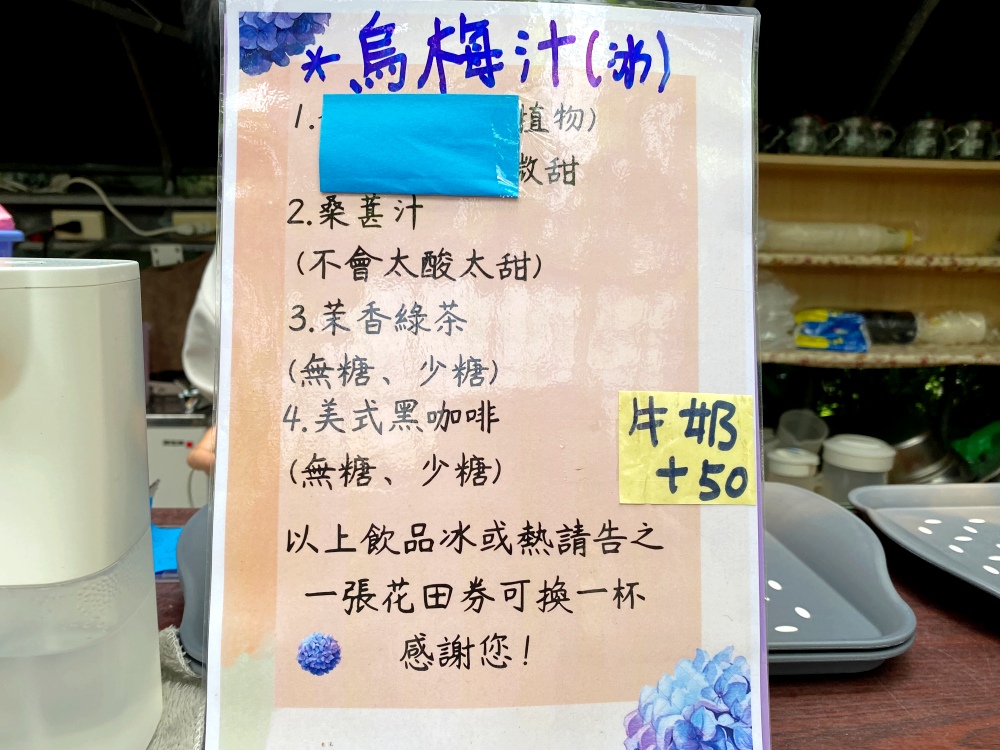 *烏梅汁(冰)
1. 植物)
微甜
2.桑葚汁
(不會太酸太甜)
3.茉香綠茶
(無糖、少糖)
4.美式黑咖啡
(無糖、少糖)
牛奶
+50
以上飲品冰或熱請告之
一張花田券可換一杯
感謝您!